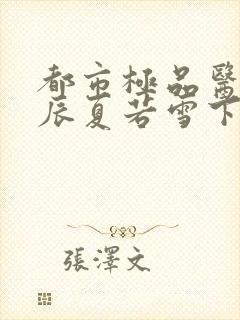 都市極品醫
辰夏若雪下
張澤文